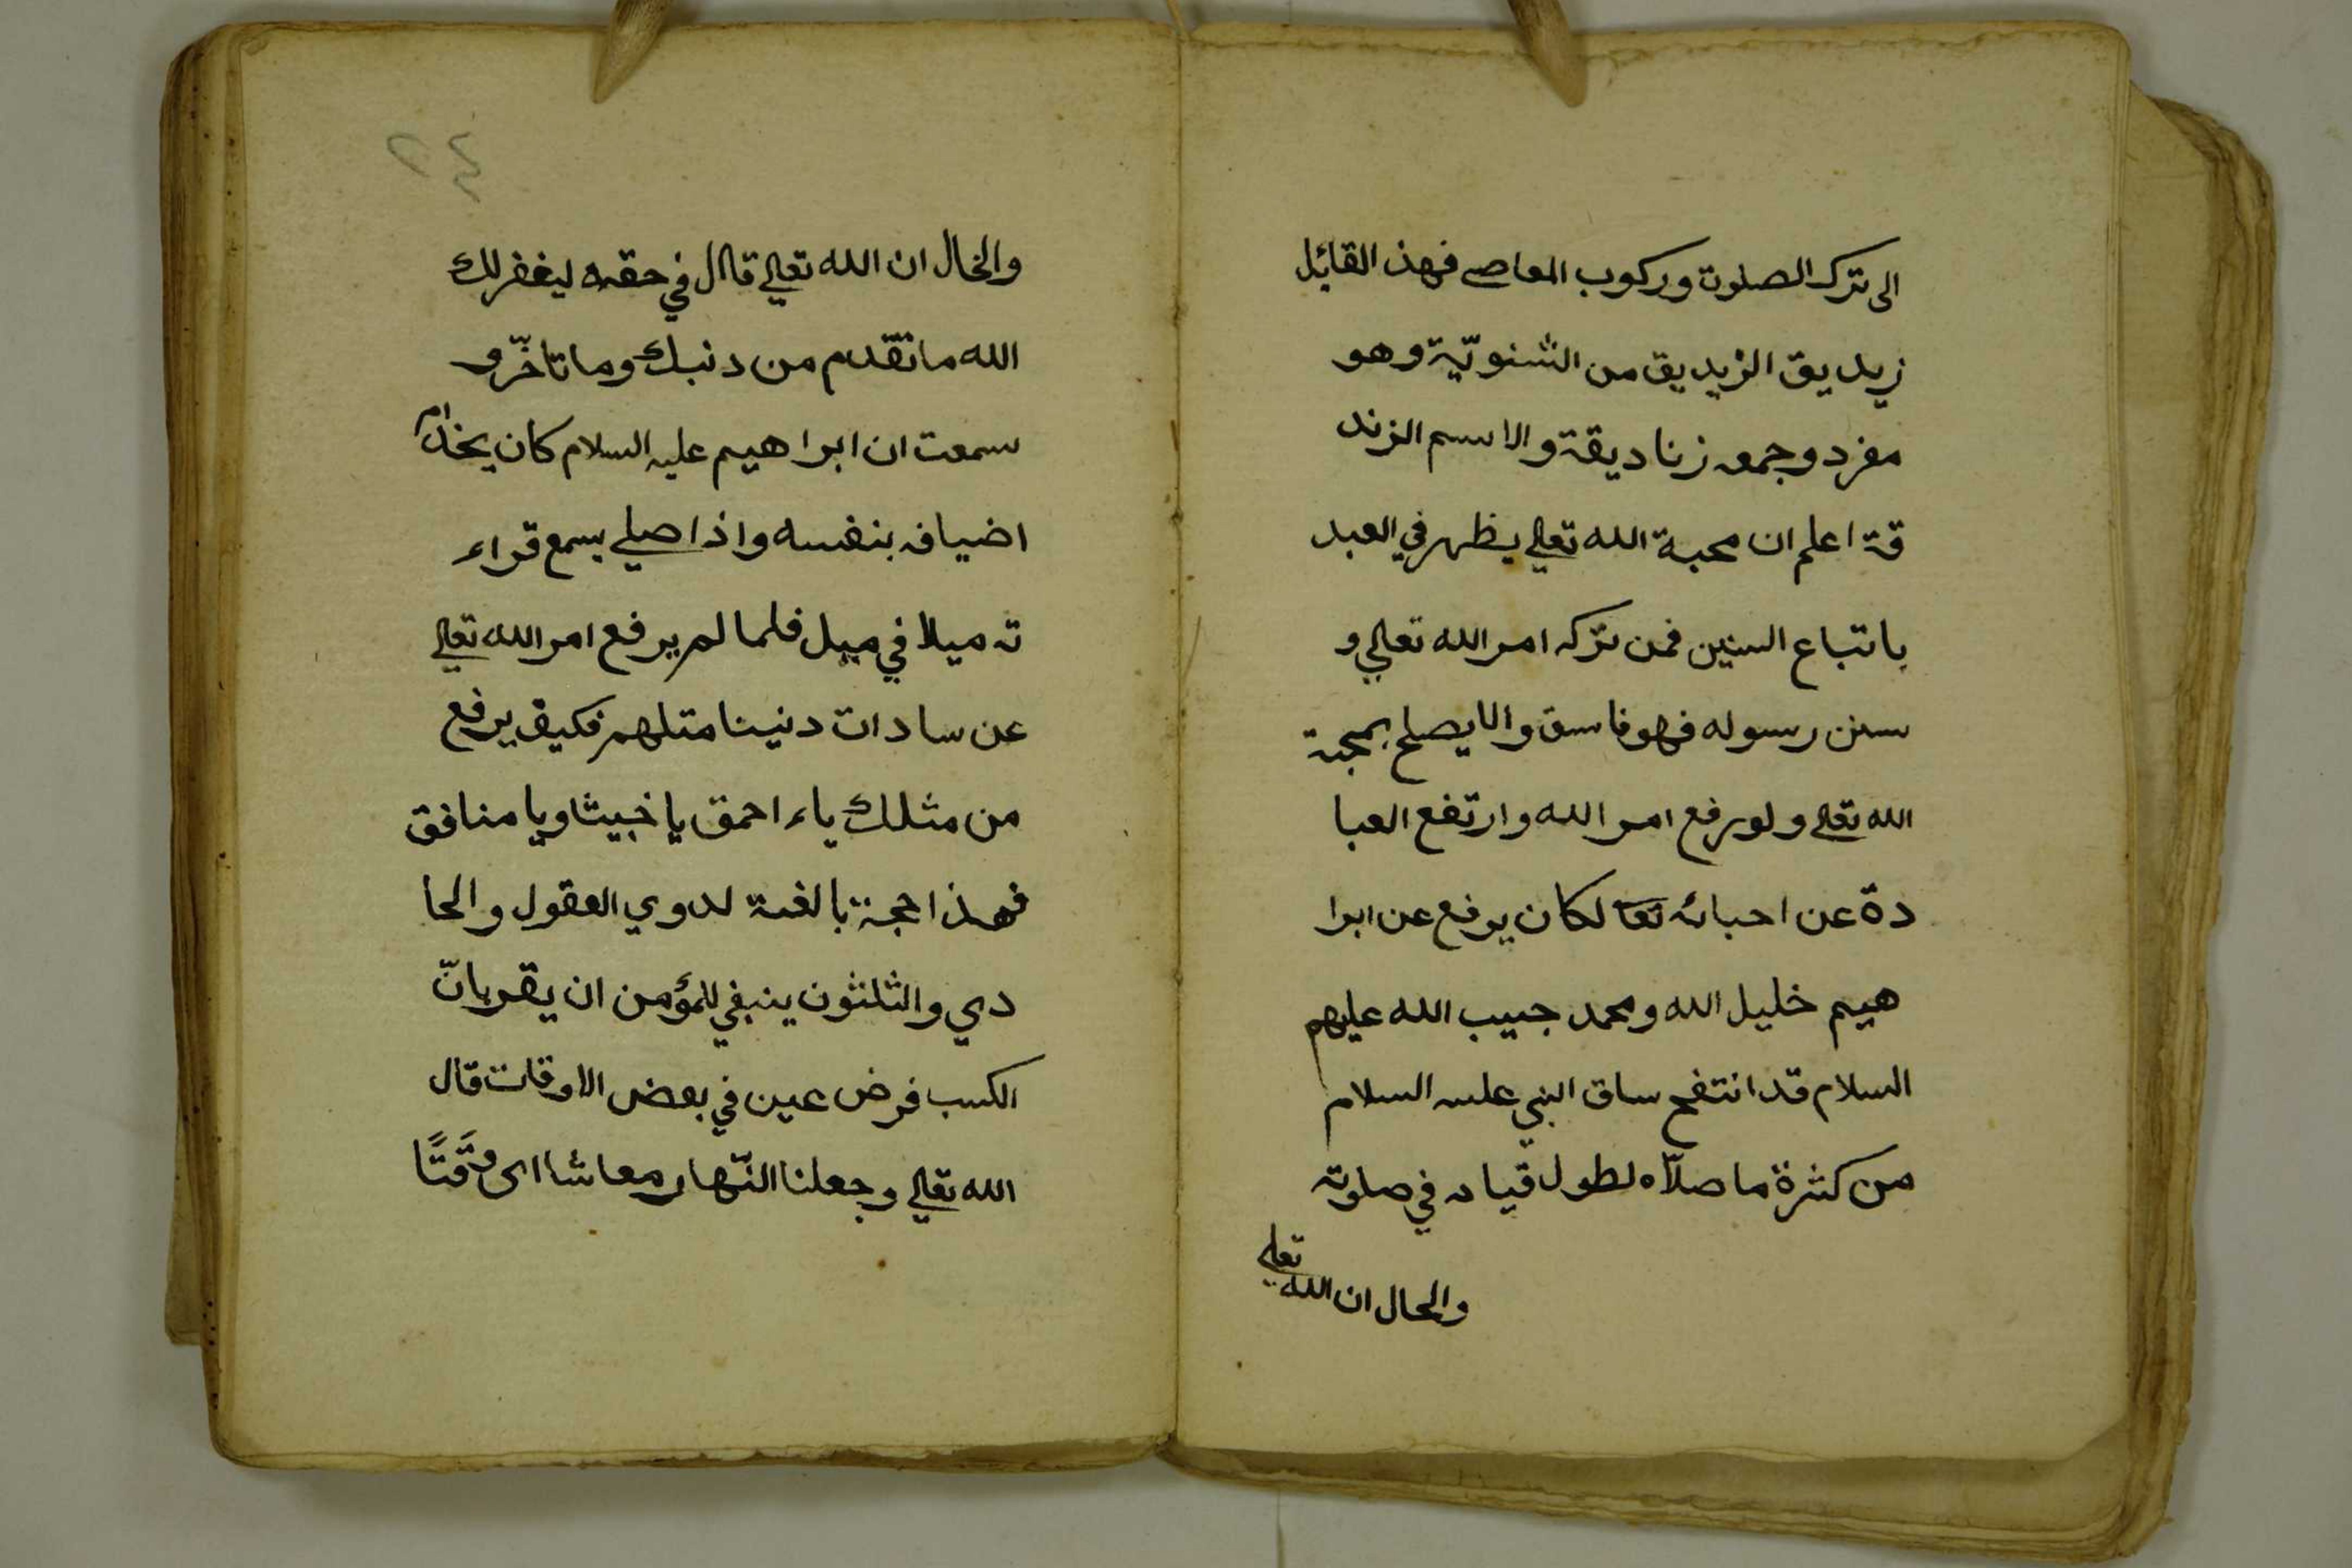 الى ترك الصلوت وركوب المعاصے فهذ القائل
زيديق الزيديق من الثنويّة وهو
مفرد وجمعه زناديقة والاسم الزند
قة اعلم ان محبة الله تعالى يظهر في العبد
باتباع السنين فمن تركه امر الله تعالى و
سنن رسوله فهو فاسق والايصلح بمحبة
الله تعالى ولو رفع امر الله وارتفع العبا
دة عن احبائه تعا لكان يرفع عن ابرا
هيم خليل الله ومحمد حبيب الله عليهم
السلام قد انتفح ساق النبي عليه السلام
من كثرة ما صلاّه لطول قيامه في صلوته
والحال ان الله تعالى
٢٤
والخال ان الله تعالى قال في حقه ليغفر لك
الله ما تقدم من دنبك وما تاخّر و
سمعت ان ابراهيم عليه السلام كان يخدام
اضيافه بنفسه واذا صلي يسمع قراء
ته ميلا في ميل فلما لم يرفع امر الله تعالى
عن سادات دنينا متلهم فكيف يرفع
من مثلك ياء احمق يا خبيثا ويا منافق
فهذا حجة بالغة لدوي العقول والحا
دي والثلثون ينبغي للمؤمن ان يقر بانّ
الكسب فرض عين في بعض الاوقات قال
الله تعالى وجعلنا النّهار معاشا اى وَقتًا